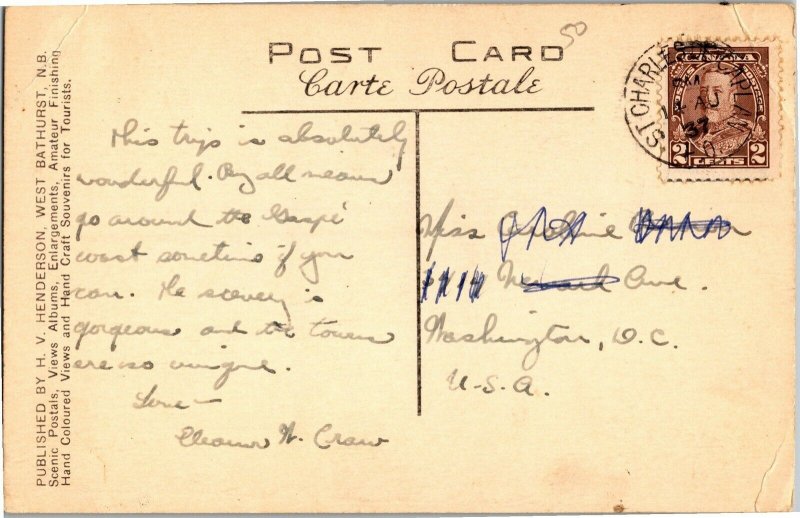 POST CARD
Carte Postale
50
This trip is absolutely
wonderful. By all means
go around the Gaspé
coast sometime if you
can. The scenery is
gorgeous and the towns
are so unique.
Love—
Eleanor W. Craw
Miss
Ave.
Washington, D.C.
U.S.A.
ST CHARLES DE CAPLAN
AU
37
CANADA
POSTES POSTAGE
2 CENTS 2
PUBLISHED BY H. V. HENDERSON, WEST BATHURST, N.B.
Scenic Postals, Views Albums, Enlargements, Amateur Finishing
Hand Coloured Views and Hand Craft Souvenirs for Tourists.